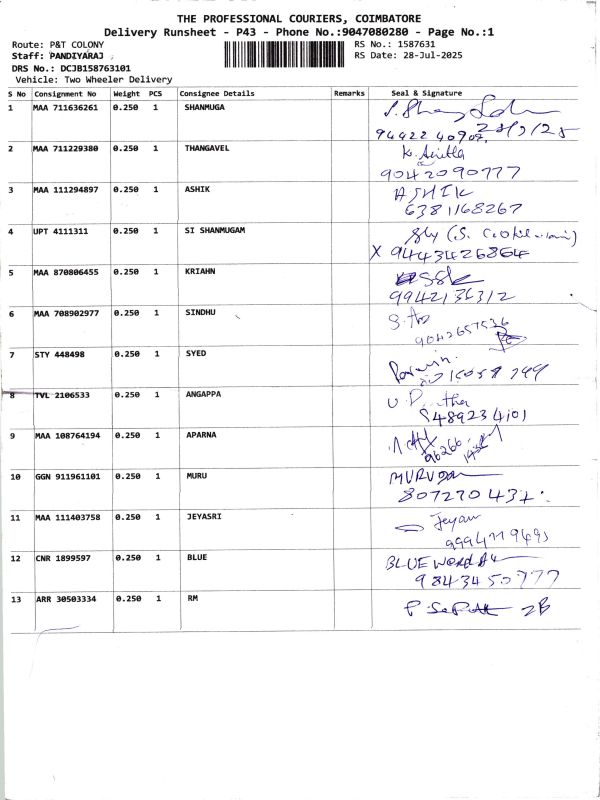 THE PROFESSIONAL COURIERS, COIMBATORE
Delivery Runsheet - P43 - Phone No.:9047080280 - Page No.:1
Route: P&T COLONY RS No.: 1587631
Staff: PANDIYARAJ RS Date: 28-Jul-2025
DRS No.: DCJB158763101
Vehicle: Two Wheeler Delivery
S No Consignment No Weight PCS Consignee Details Remarks Seal & Signature
1 MAA 711636261 0.250 1 SHANMUGA
94422 40907
2 MAA 711229380 0.250 1 THANGAVEL
9042090777
3 MAA 111294897 0.250 1 ASHIK ASHIK
6381168267
4 UPT 4111311 0.250 1 SI SHANMUGAM
X 9443426864
5 MAA 870806455 0.250 1 KRIAHN
9942136312
6 MAA 708902977 0.250 1 SINDHU
9042657536
7 STY 448498 0.250 1 SYED
8 TVL 2106533 0.250 1 ANGAPPA
489234101
9 MAA 108764194 0.250 1 APARNA
10 GGN 911961101 0.250 1 MURU
11 MAA 111403758 0.250 1 JEYASRI
12 CNR 1899597 0.250 1 BLUE BLUE
9843450777
13 ARR 30503334 0.250 1 RM 2B